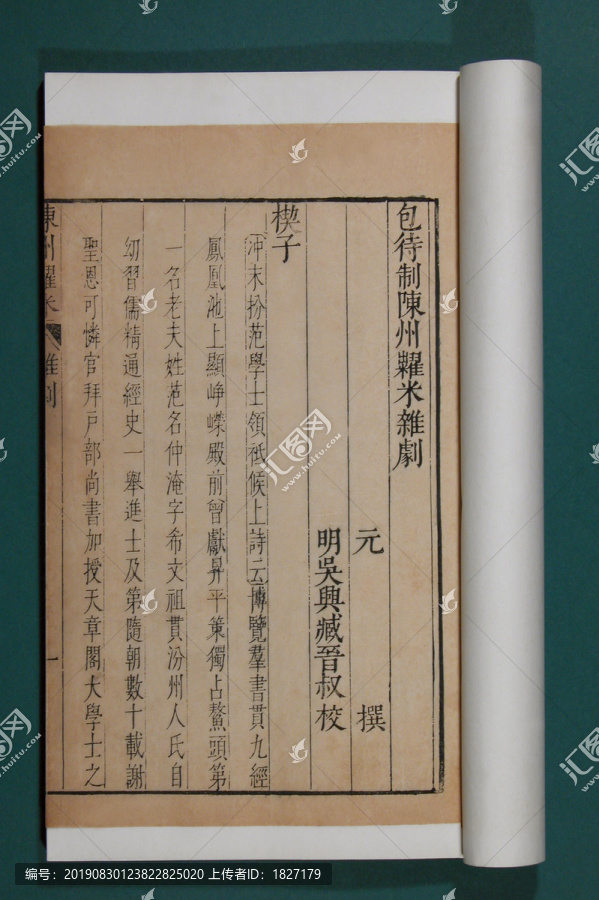 包待制陳州糶米雜劇
元　撰
明吳興臧晉叔校
楔子
冲末扮范學士領祗候上詩云博覽羣書貫九經
鳳凰池上顯崢嶸殿前曾獻昇平策獨占鰲頭第
一名老夫姓范名仲淹字希文祖貫汾州人氏自
幼習儒精通經史一舉進士及第隨朝數十載謝
聖恩可憐官拜戸部尚書加授天章閣大學士之
陳州糶米　雜劇　一
汇图网
huitu.com
编号：20190830123822825020 上传者ID：1827179